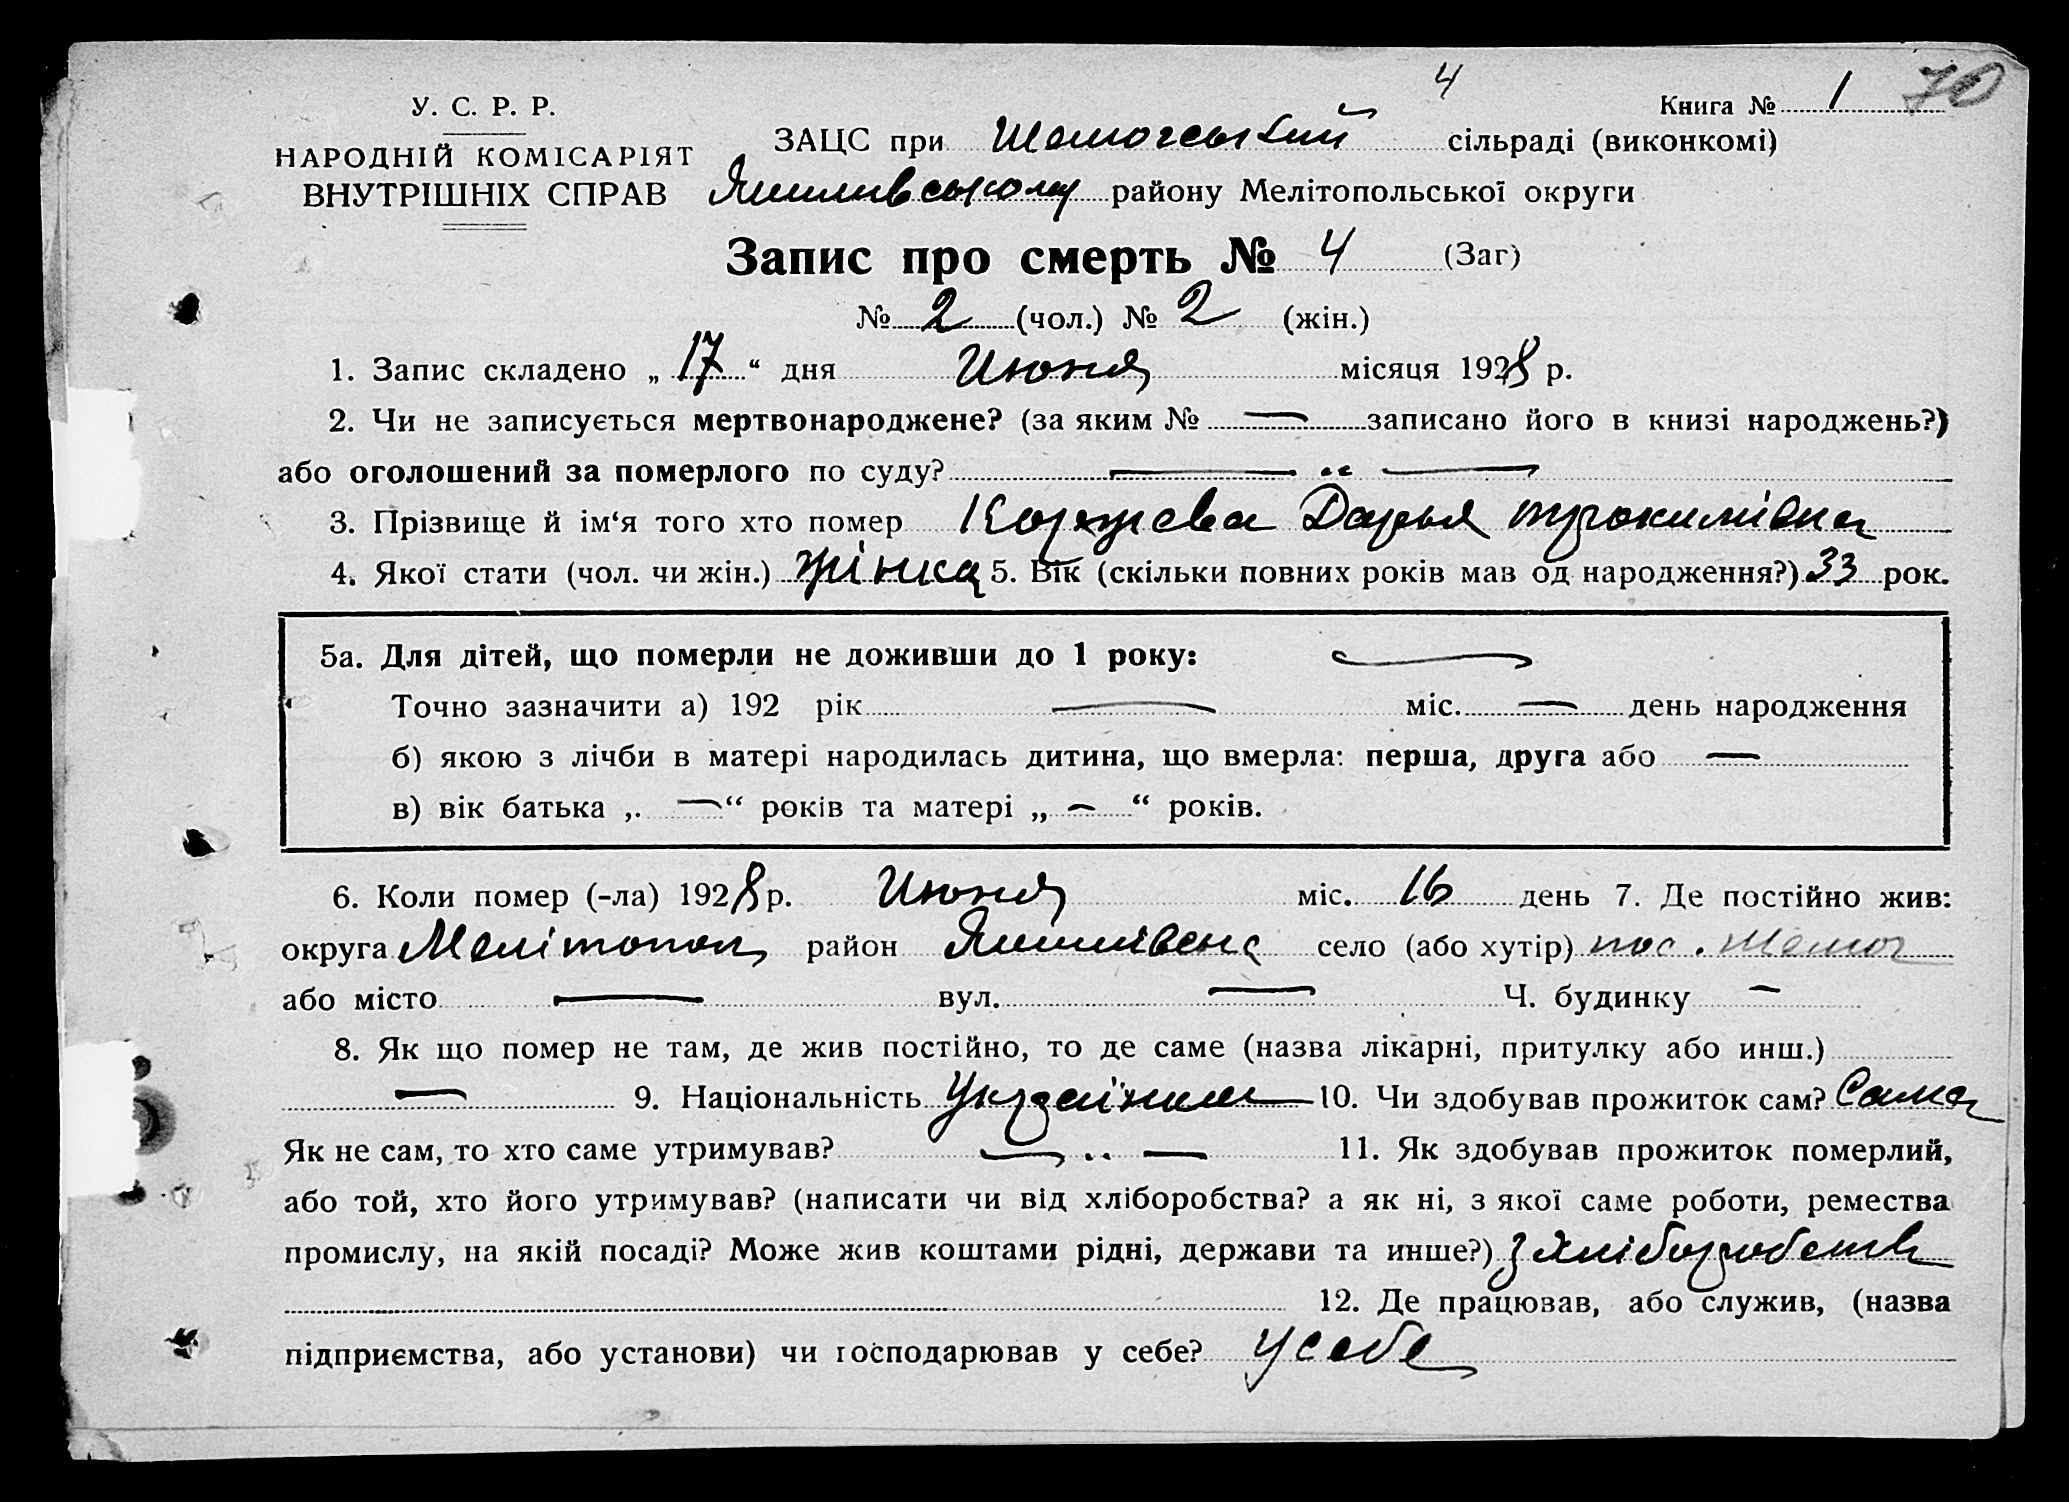 4
У. С. Р. Р.
Книга № 1 70
НАРОДНІЙ КОМІСАРІЯТ
ВНУТРІШНІХ СПРАВ
ЗАЦС при сільраді (виконкомі)
району Мелітопольської округи
Запис про смерть № 4 (Заг)
№ 2 (чол.) № 2 (жін.)
1. Запис складено „ 17 “ дня Июня місяця 1928 р.
2. Чи не записується мертвонароджене? (за яким № — записано його в книзі народжень?)
або оголошений за померлого по суду? — " —
3. Прізвище й ім‘я того хто помер Коржева Дарья трохимівна
4. Якої стати (чол. чи жін.) жінка 5. Вік (скільки повних років мав од народження?) 33 рок.
5а. Для дітей, що померли не доживши до 1 року: —
Точно зазначити а) 192 рік — міс. — день народження
б) якою з лічби в матері народилась дитина, що вмерла: перша, друга або —
в) вік батька „ — “ років та матері „ — “ років.
6. Коли помер (-ла) 1928 р. Июня міс. 16 день 7. Де постійно жив:
округа Мелітопол район село (або хутір) пос.
або місто — вул. — Ч. будинку —
8. Як що помер не там, де жив постійно, то де саме (назва лікарні, притулку або инш.)
— 9. Національність 10. Чи здобував прожиток сам? Сама
Як не сам, то хто саме утримував? — " — 11. Як здобував прожиток померлий,
або той, хто його утримував? (написати чи від хліборобства? а як ні, з якої саме роботи, ремества
промислу, на якій посаді? Може жив коштами рідні, держави та инше?) З хліборобств
12. Де працював, або служив, (назва
підприємства, або установи) чи господарював у себе? у себе